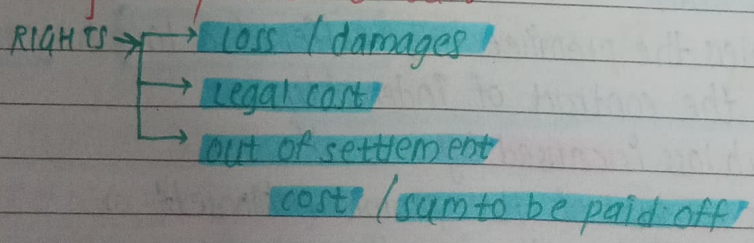 RIGHTS → loss / damages
→ Legal cost
→ out of settlement
cost / sum to be paid off